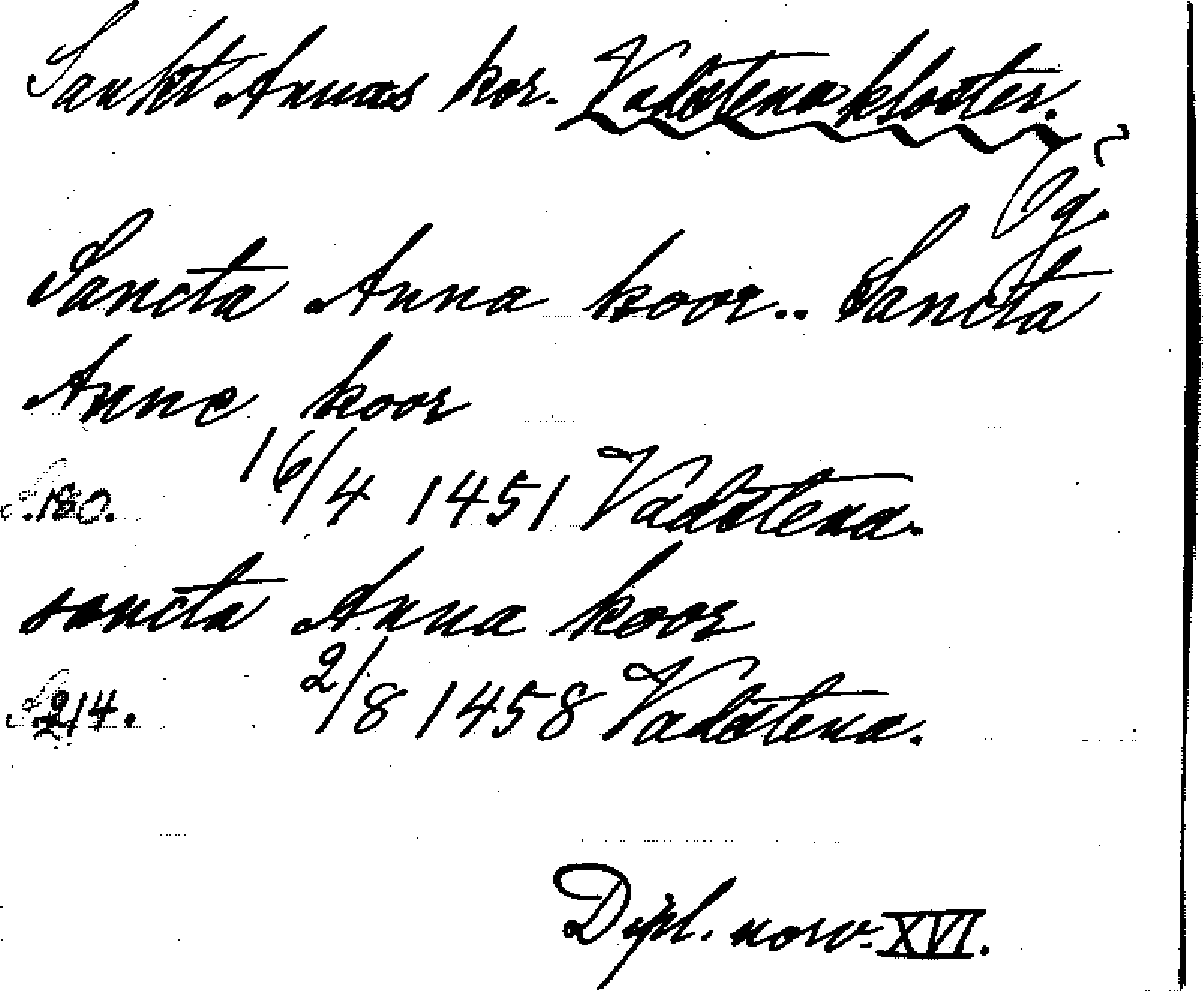 Sankt Annas kor. Vadstena kloster.
Ög.
Sancta Anna koor.. Sancta
Anne koor
s.180. 16/4 1451 Vadstena.
sancta Anna koor
s.214. 2/8 1458 Vadstena.
Dipl. norv. XVI.